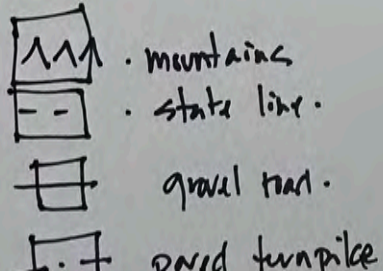 . mountains
. state line.
gravel road.
paved turnpike